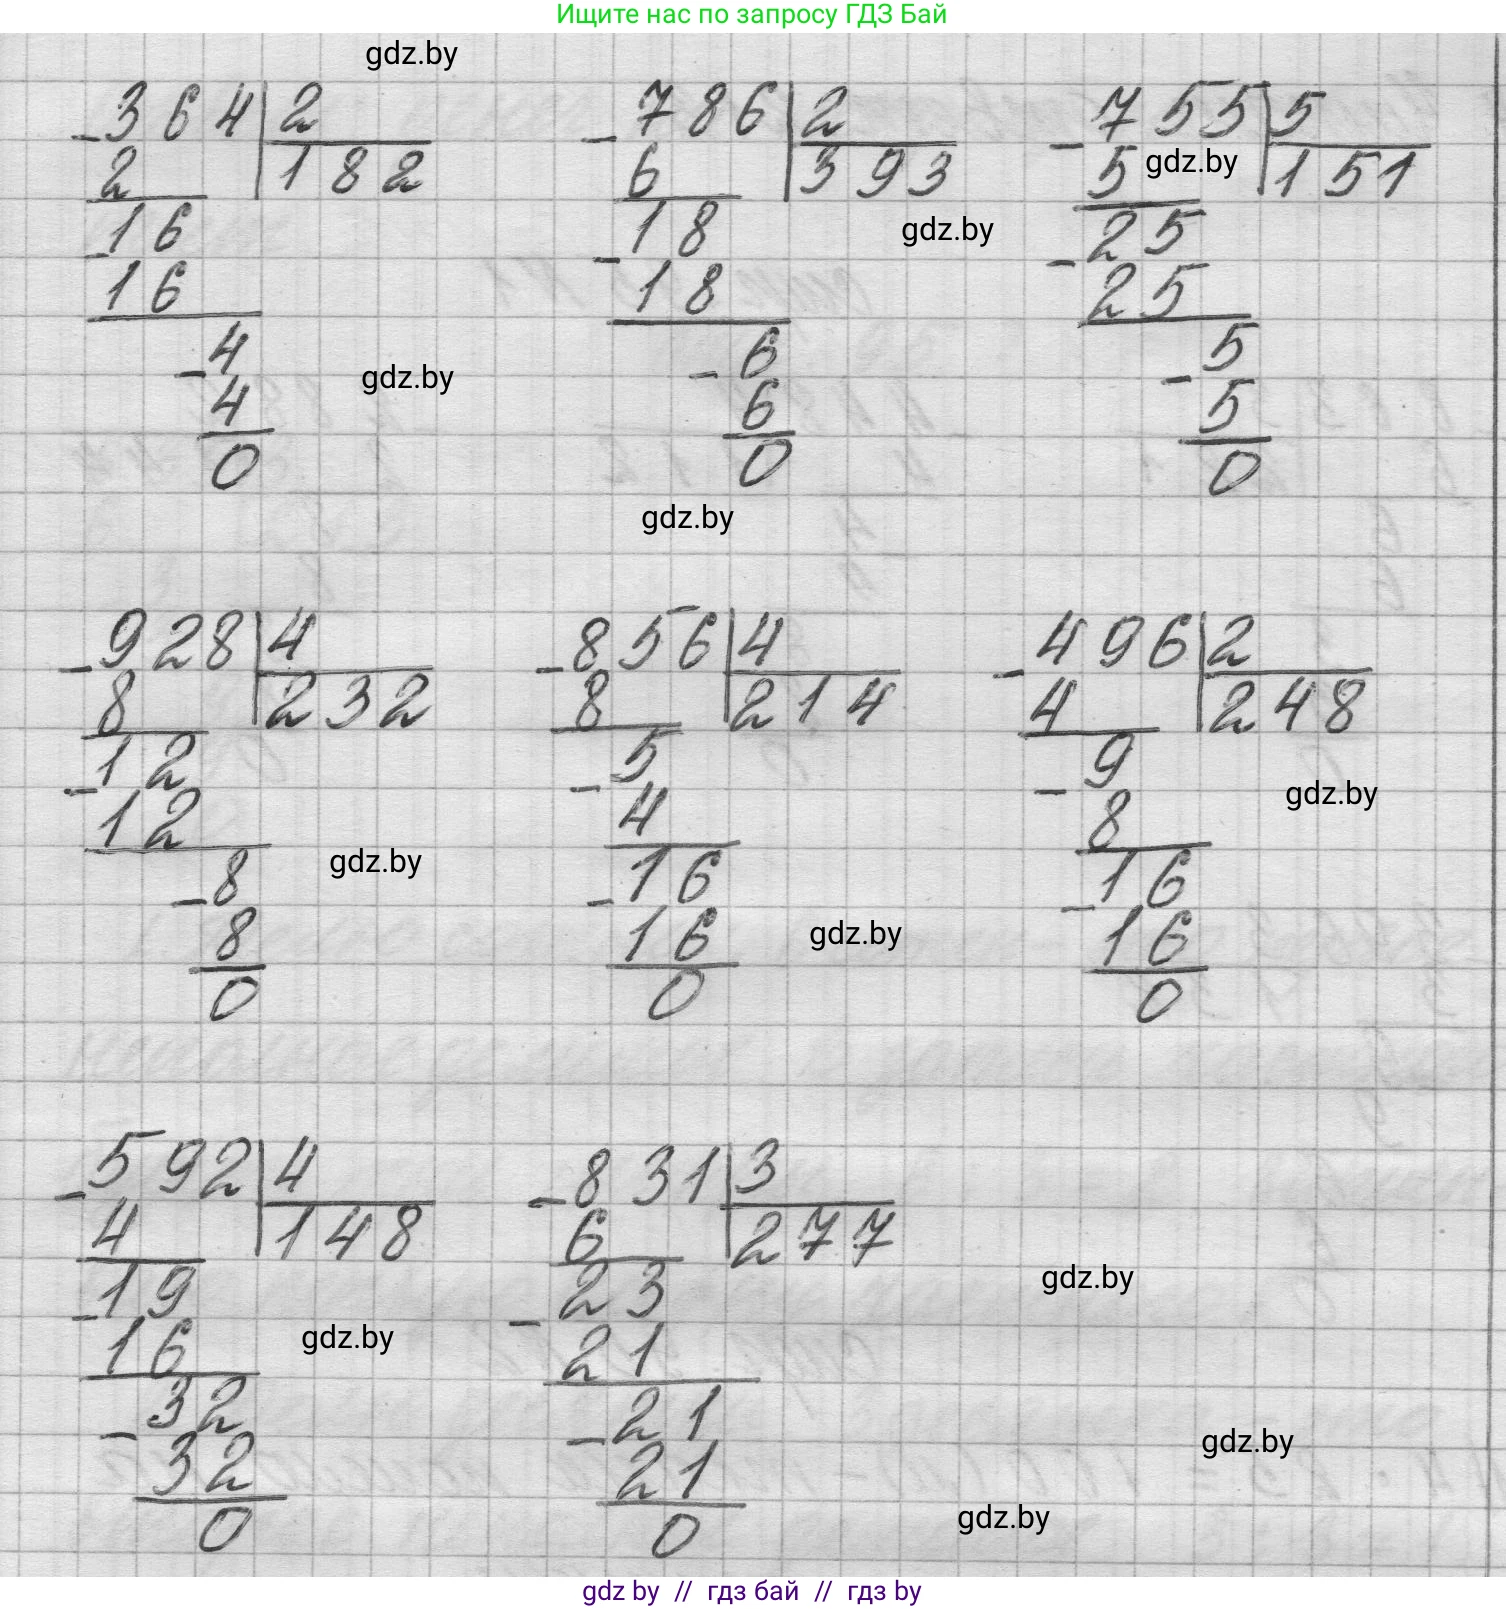 Ищите нас по запросу ГДЗ Бай
gdz.by
-364|2 -786|2 -755|5
2 182 6 393 5 gdz.by 151
-16 -18 gdz.by -25
16 18 25
-4 -6 -5
gdz.by
4 6 5
0 0 0
gdz.by
-928|4 -856|4 -496|2
8 232 8 214 4 248
-12 -5 -9
gdz.by
12 4 8
gdz.by
-8 -16 -16
8 16 gdz.by 16
0 0 0
-592|4 -831|3
4 148 6 277
-19 -23
gdz.by
16 gdz.by 21
-32 -21
gdz.by
32 21
gdz.by
0 0
gdz by // гдз бай // гдз by